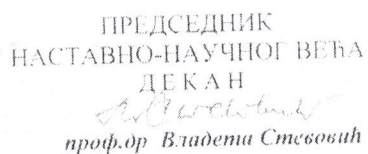 ПРЕДСЕДНИК
НАСТАВНО-НАУЧНОГ ВЕЋА
Д Е К А Н
проф.др Владета Стевовић